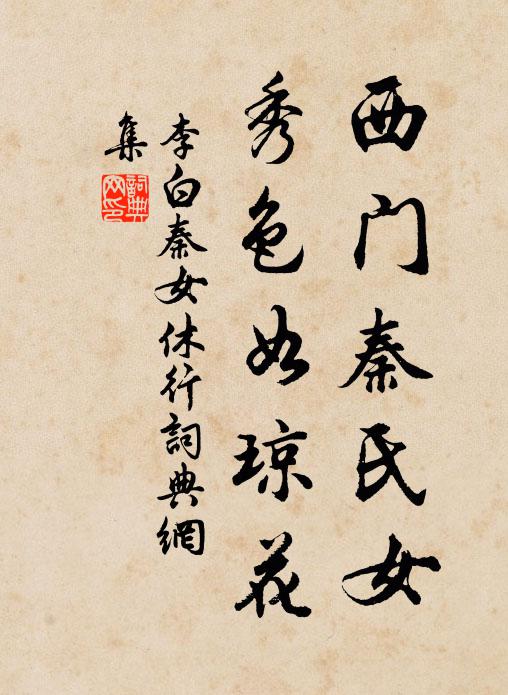 西门秦氏女
秀色如琼花
李白秦女休行詞典網
集
詞典
网印